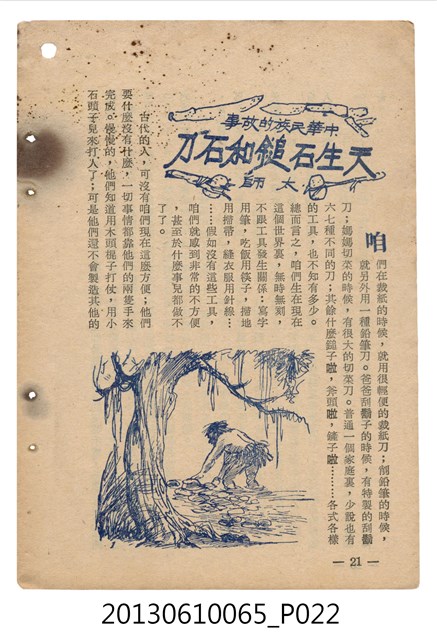 中華民族的故事
天生石鎚和石刀
太師
咱們在裁紙的時候,就用很輕便的裁紙刀;削鉛筆的時候,
就另外用一種鉛筆刀。爸爸刮鬍子的時候,有特製的刮鬍
刀;媽媽切菜的時候,有很大的切菜刀。普通一個家庭裏,少說也有
六七種不同的刀;其餘什麼鎚子啦,斧頭啦,鏟子啦………各式各樣
的工具,也不知有多少。
總而言之,咱們生在現在
這個世界裏,無時無刻,
不跟工具發生關係:寫字
用筆,吃飯用筷子,掃地
用掃帚,縫衣服用針線…
…假如沒有這些工具,
咱們就感到非常的不方便
,甚至於什麼事兒都做不
了了。
古代的人,可沒有咱們現在這麼方便;他們
要什麼沒有什麼,一切事情都靠他們的兩隻手來
完成。慢慢的,他們知道用木頭棍子打仗,用小
石頭子兒來打人了;可是他們還不會製造其他的
— 21 —
20130610065_P022